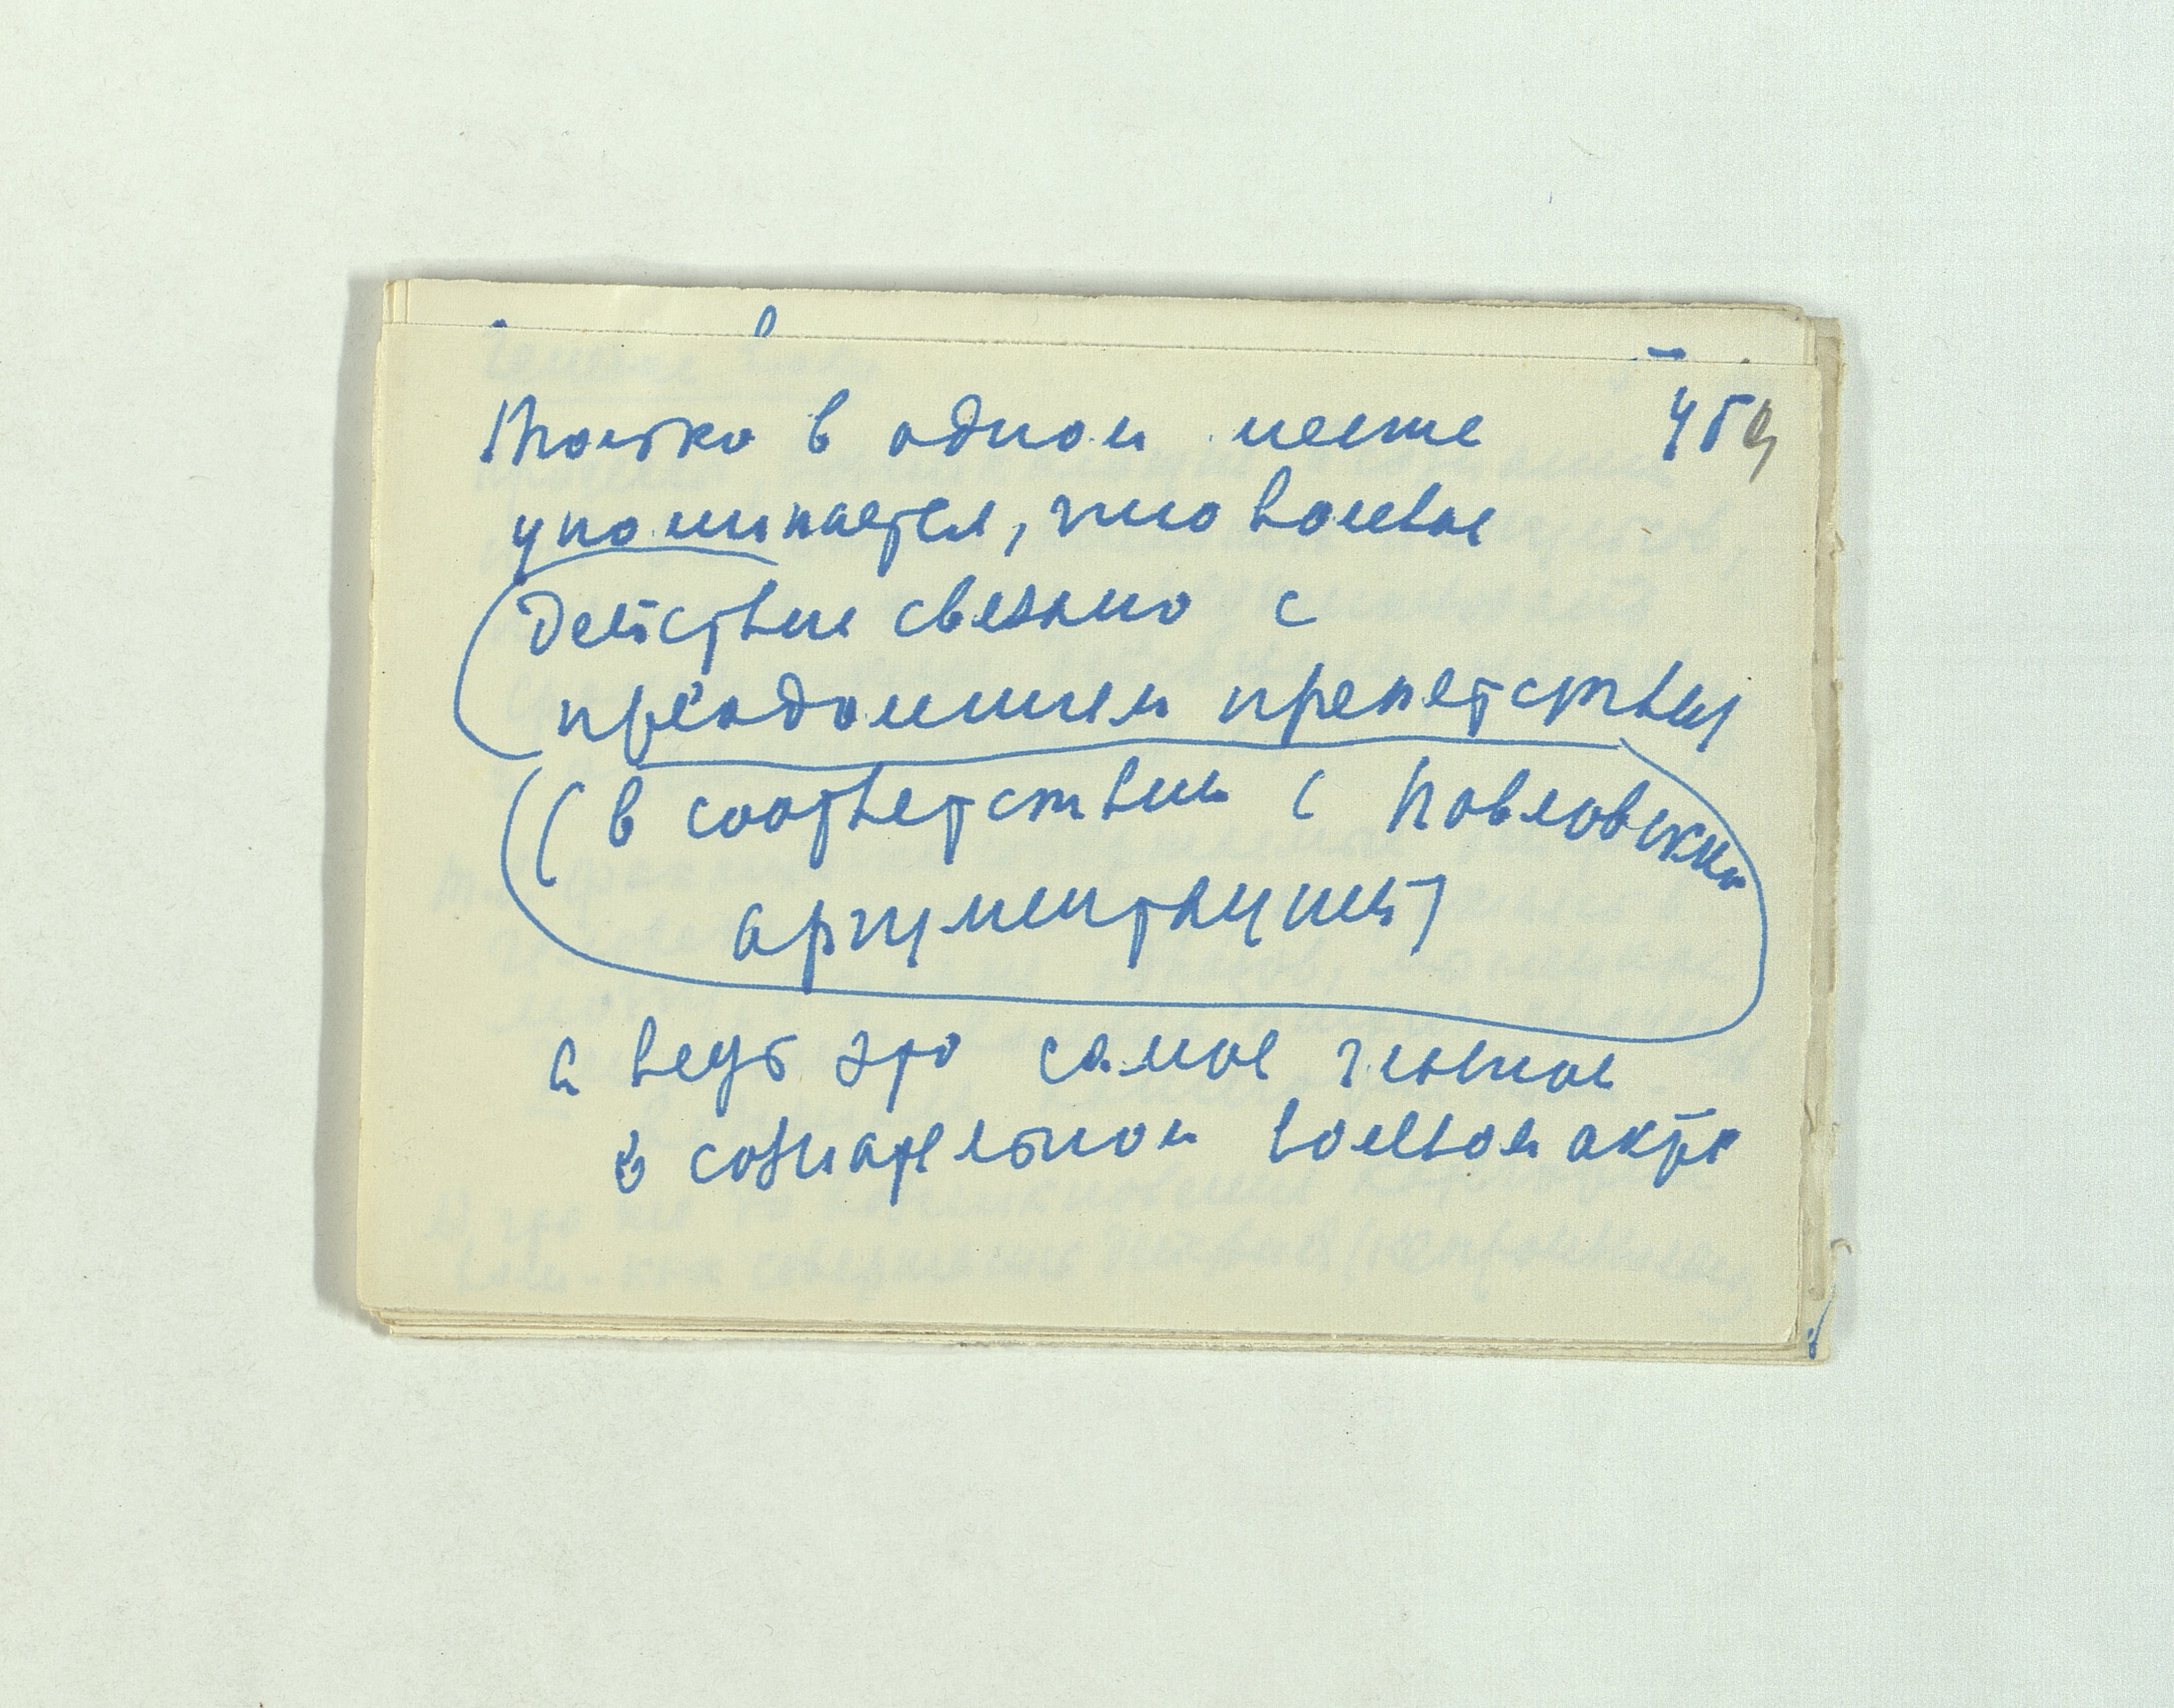 Только в одном месте 459
упоминается, что волевое
действие связано с
преодолением препятствия
(в соответствии с Павловской
аргументацией)
а ведь это самое главное
в сознательном волевом акте